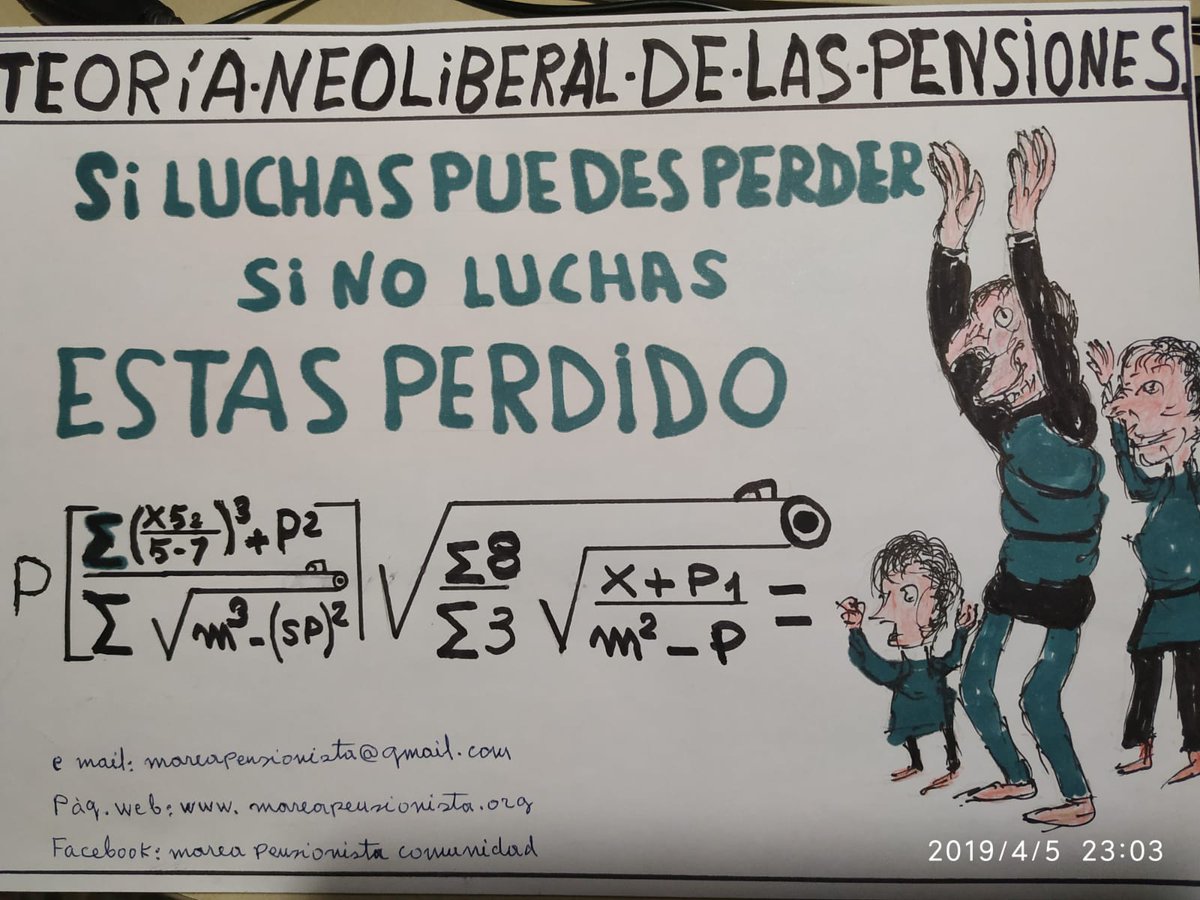 TEORÍA·NEOLIBERAL·DE·LAS·PENSIONES
SI LUCHAS PUEDES PERDER
SI NO LUCHAS
ESTAS PERDIDO
P [ Σ (X52 / 5-7)³ + P2 / Σ √ m³ - (5P)² ] √ Σ8 / Σ3 √ X + P1 / m² - P =
e mail: mareapensionista@gmail.com
Pàg. web: www. mareapensionista.org
Facebook: marea pensionista comunidad
2019/4/5 23:03